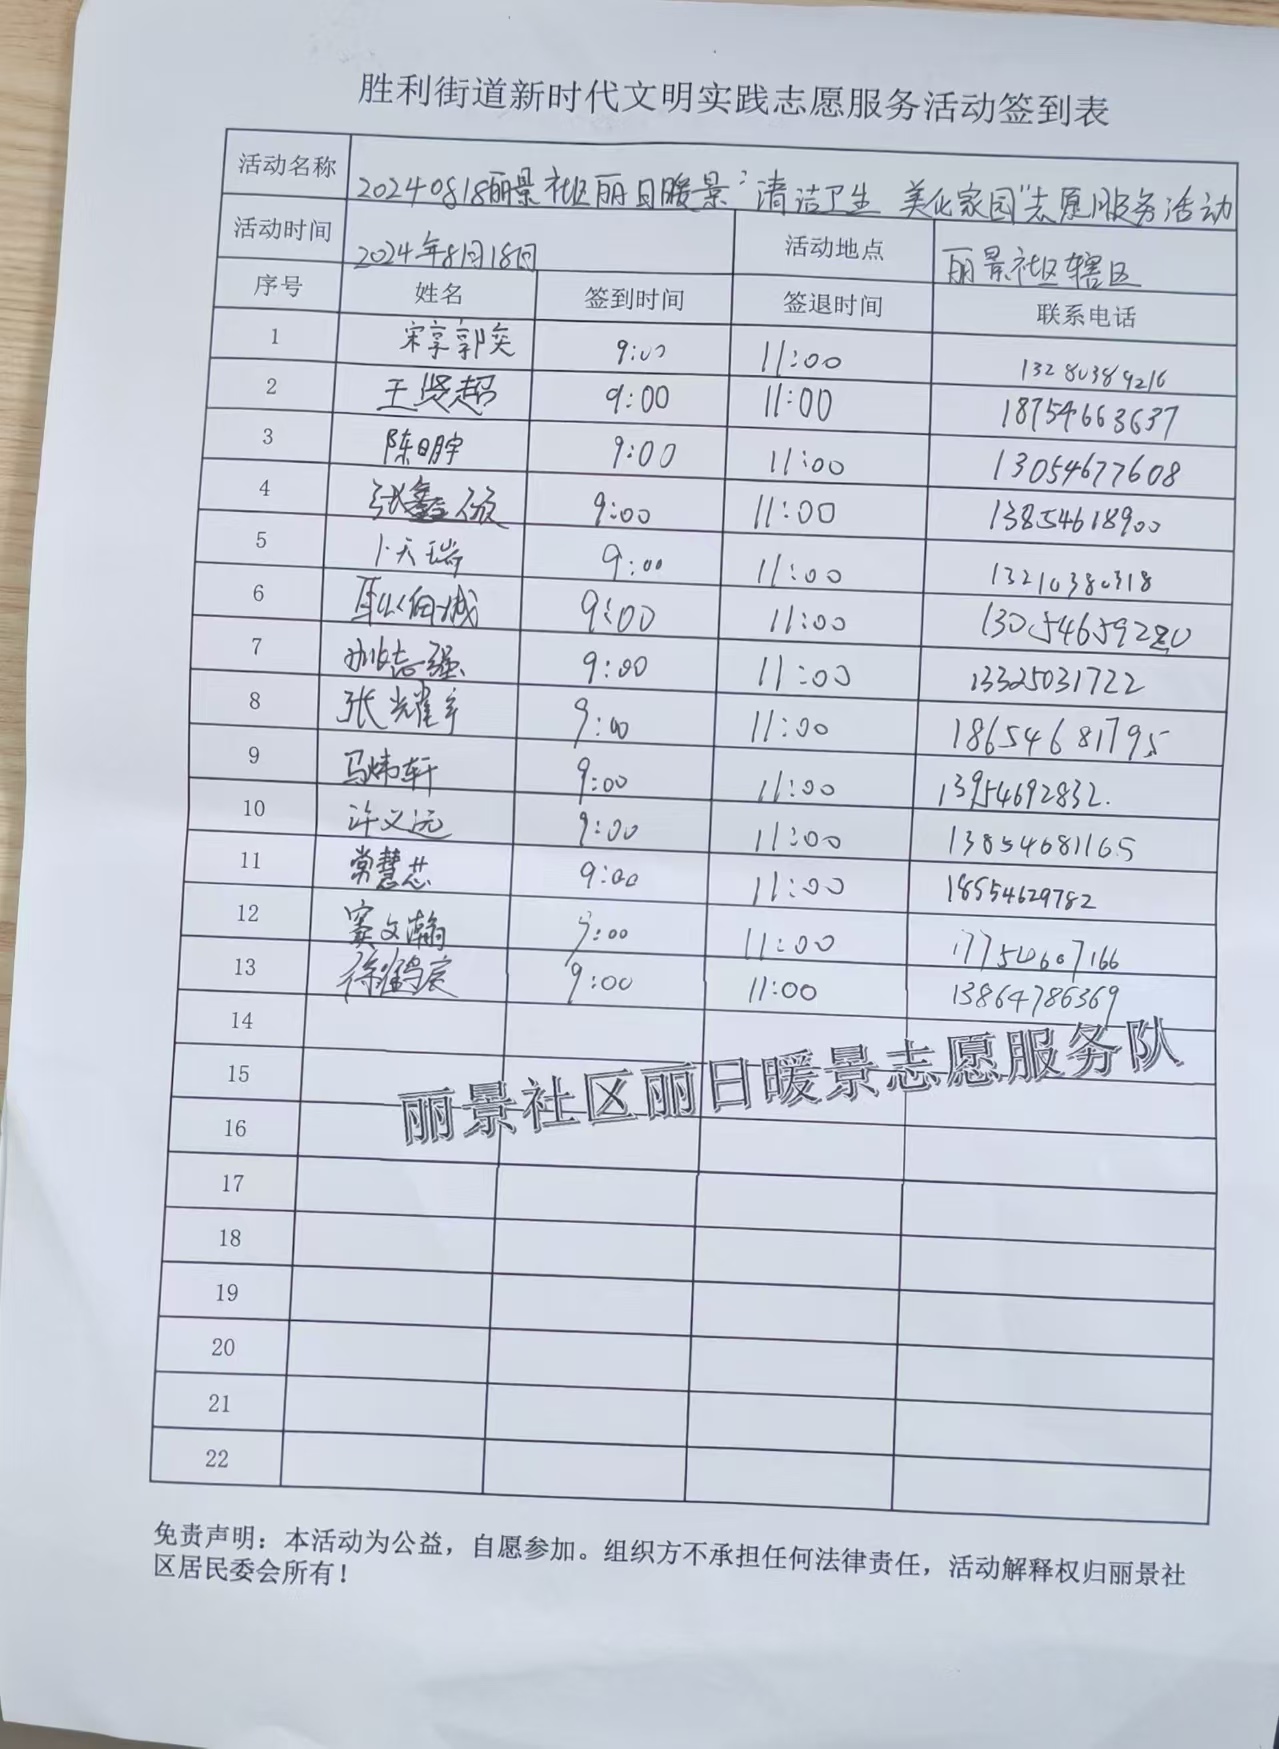 胜利街道新时代文明实践志愿服务活动签到表
活动名称 20240818丽景社区丽日暖景"清洁卫生 美化家园"志愿服务活动
活动时间 2024年8月18日 活动地点 丽景社区辖区
序号 姓名 签到时间 签退时间 联系电话
1 宋享郭奕 9:00 11:00 13280389216
2 王贤超 9:00 11:00 18754663637
3 陈明宇 9:00 11:00 13054677608
4 张鑫 9:00 11:00 13854618900
5 卜天瑞 9:00 11:00 13210380318
6 9:00 11:00
7 志强 9:00 11:00 13325031722
8 张耀 9:00 11:00 18654681795
9 马炜轩 9:00 11:00 13954692832.
10 许义远 9:00 11:00 13854681165
11 常慧芯 9:00 11:00 18554629782
12 窦文瀚 9:00 11:00
13 徐 9:00 11:00 13864786369
14
15
丽景社区丽日暖景志愿服务队
16
17
18
19
20
21
22
免责声明：本活动为公益，自愿参加。组织方不承担任何法律责任，活动解释权归丽景社
区居民委会所有！